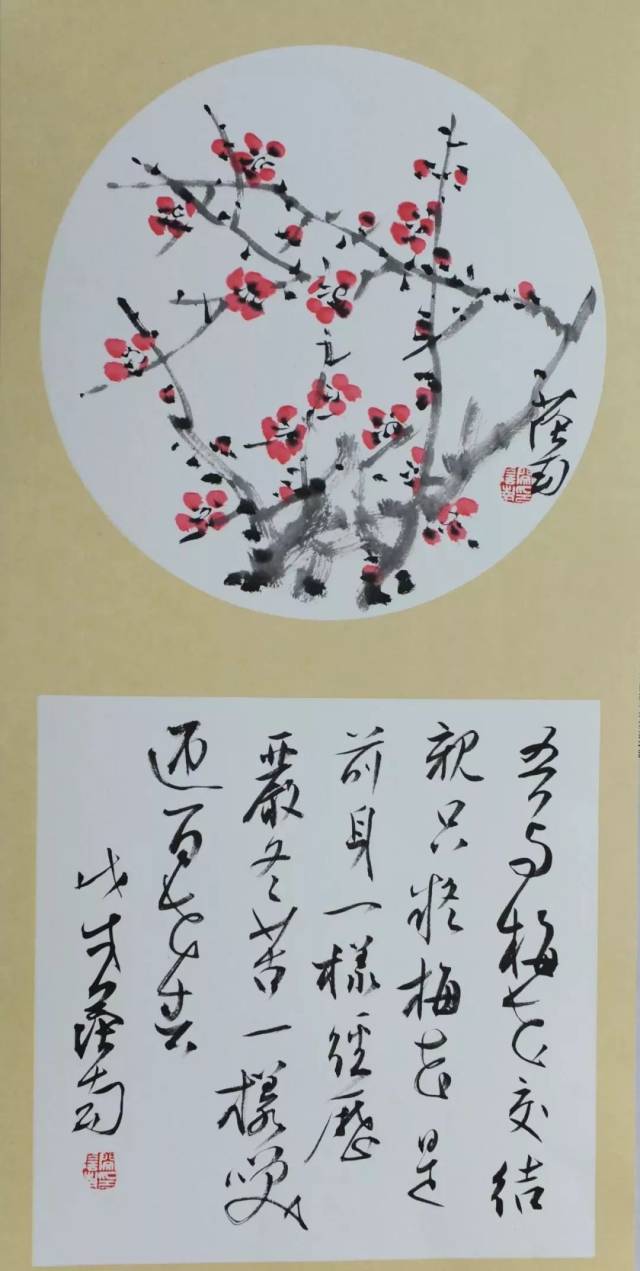 蔭南
吾与梅花交结
親只疑梅花是
前身一樣經歷
嚴冬苦一樣笑
迎百花春
戊戌蔭南